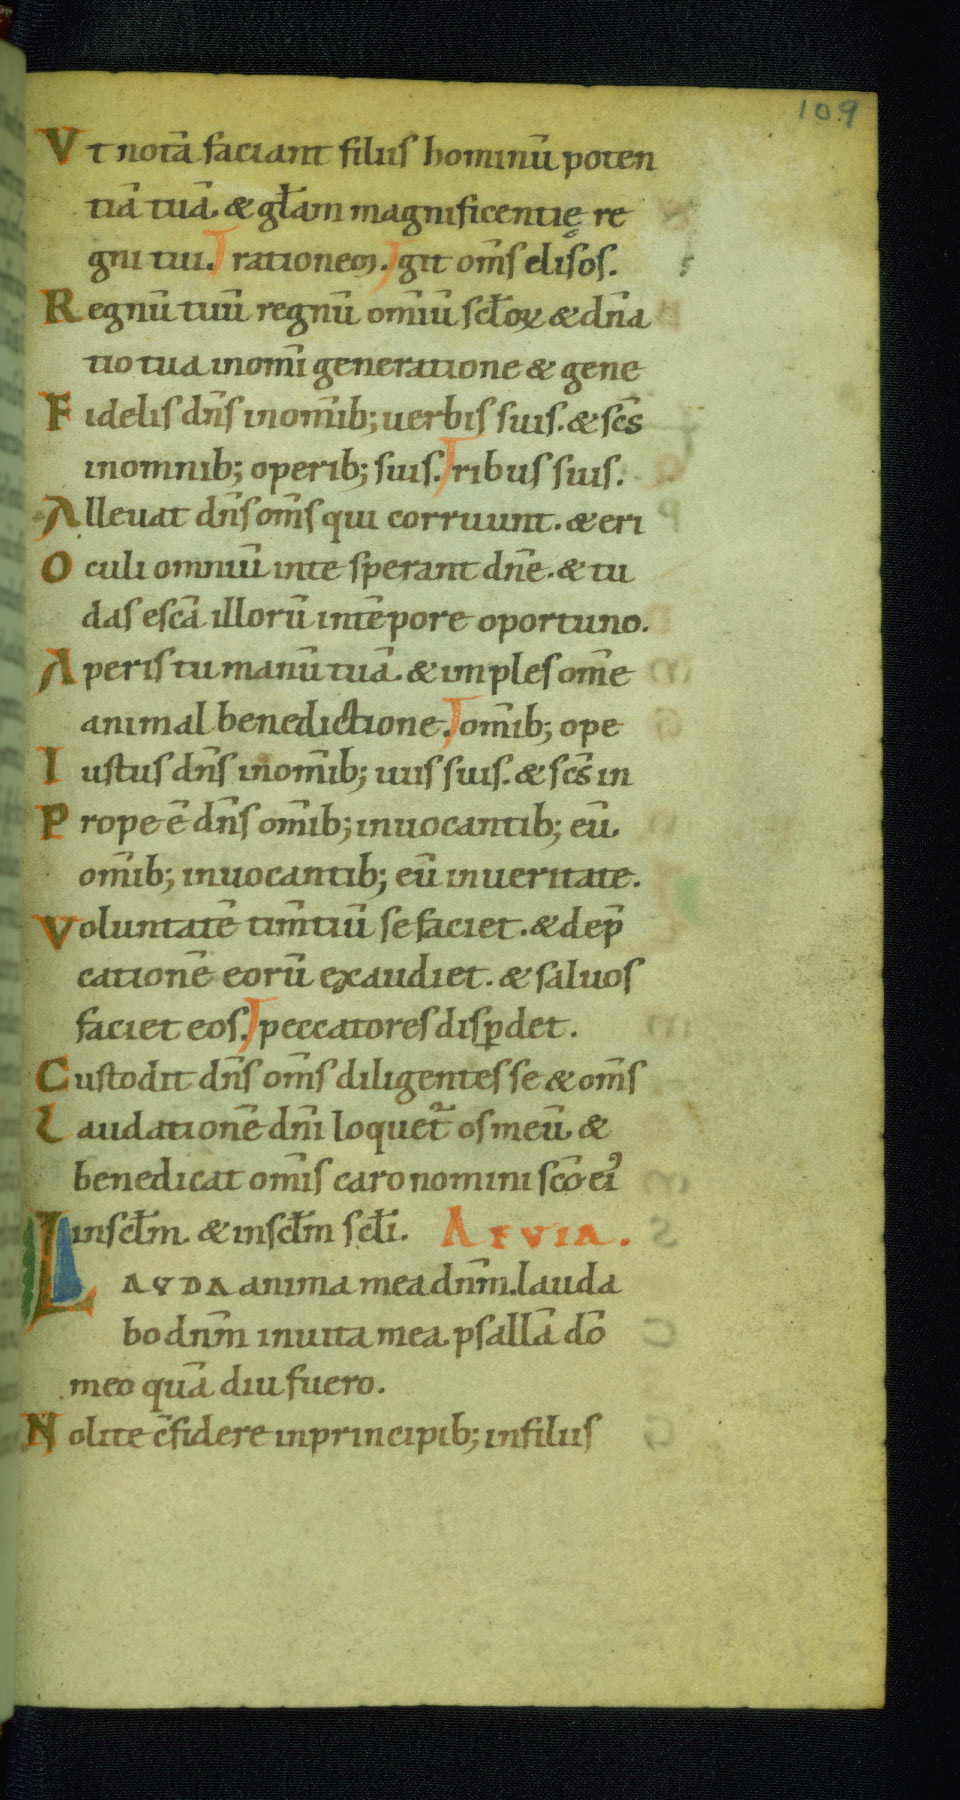 109
Vt notā faciant filiis hominū poten
tiā tuā. & gł̄am magnificentię re
gni tui. rationem. git om̄s elisos.
Regnū tuū regnū omīū scł̄oꝝ & dn̄a
tio tua inomī generatione & gene
Fidelis dn̄s inom̄ib; uerbis suis. & sc̄s
inomnib; operib; suis. ribus suis.
Alleuat dn̄s om̄s qui corruunt. & eri
Oculi omniū inte sperant dn̄e. & tu
das escā illorū intēpore oportuno.
Aperis tu manū tuā. & imples om̄e
animal benedictione. om̄ib; ope
Iustus dn̄s inom̄ib; uiis suis. & sc̄s in
Prope ē dn̄s om̄ib; inuocantib; eū.
om̄ib; inuocantib; eū inueritate.
Voluntatē tim̄tiū se faciet. & dep̄
cationē eorū exaudiet. & saluos
faciet eos. peccatores disꝑdet.
Custodit dn̄s om̄s diligentes se & om̄s
Laudationē dn̄i loquet̄ os meū. &
benedicat om̄is caro nomini sc̄o ei᾽
inscł̄m. & inscł̄m scł̄i. AEVIA.
LAUDA anima mea dn̄m. lauda
bo dn̄m inuita mea. psallā dō
meo quā diu fuero.
Nolite c̄fidere inprincipib; infiliis